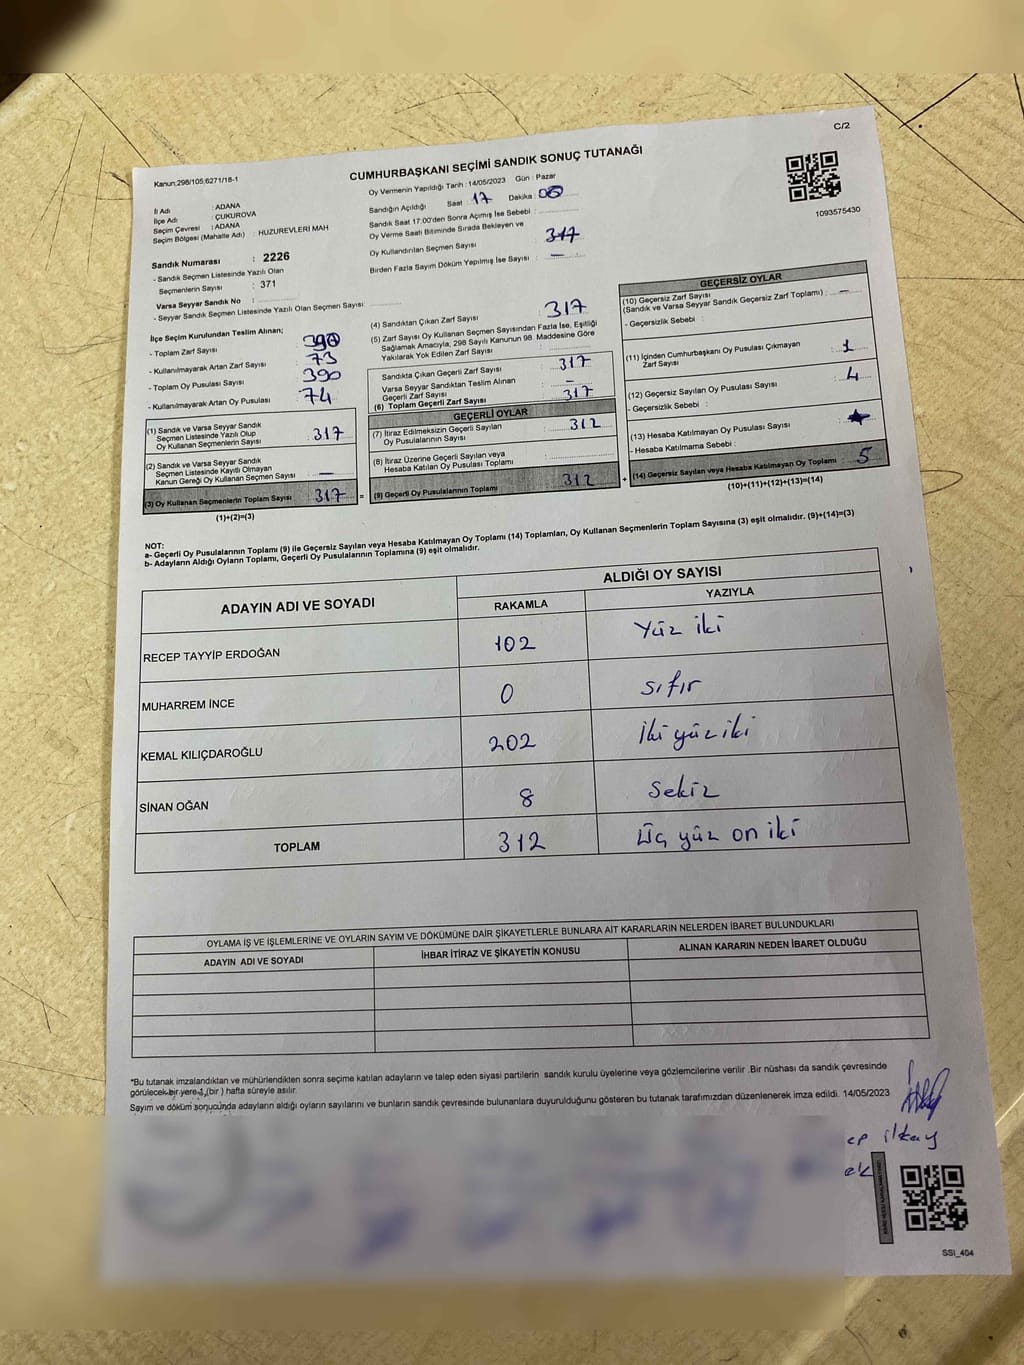 C/2
CUMHURBAŞKANI SEÇİMİ SANDIK SONUÇ TUTANAĞI
Kanun;298/105;6271/18-1
1093575430
İl Adı : ADANA
İlçe Adı : ÇUKUROVA
Seçim Çevresi : ADANA
Seçim Bölgesi (Mahalle Adı) : HUZUREVLERİ MAH
Sandık Numarası : 2226
- Sandık Seçmen Listesinde Yazılı Olan
Seçmenlerin Sayısı : 371
Varsa Seyyar Sandık No :
- Seyyar Sandık Seçmen Listesinde Yazılı Olan Seçmen Sayısı:
Oy Vermenin Yapıldığı Tarih : 14/05/2023 Gün : Pazar
Sandığın Açıldığı Saat : 17 Dakika :
Sandık Saat 17:00'den Sonra Açımış İse Sebebi :
Oy Verme Saati Bitiminde Sırada Bekleyen ve
Oy Kullandırılan Seçmen Sayısı 317
Birden Fazla Sayım Döküm Yapılmış İse Sayısı : —
İlçe Seçim Kurulundan Teslim Alınan;
- Toplam Zarf Sayısı : 390
- Kullanılmayarak Artan Zarf Sayısı : 73
- Toplam Oy Pusulası Sayısı : 390
- Kullanılmayarak Artan Oy Pusulası : 74
(1) Sandık ve Varsa Seyyar Sandık
Seçmen Listesinde Yazılı Olup
Oy Kullanan Seçmenlerin Sayısı : 317
(2) Sandık ve Varsa Seyyar Sandık
Seçmen Listesinde Kayıtlı Olmayan
Kanun Gereği Oy Kullanan Seçmen Sayısı : —
(3) Oy Kullanan Seçmenlerin Toplam Sayısı : 317 =
(1)+(2)=(3)
(4) Sandıktan Çıkan Zarf Sayısı : 317
(5) Zarf Sayısı Oy Kullanan Seçmen Sayısından Fazla İse, Eşitliği
Sağlamak Amacıyla; 298 Sayılı Kanunun 98. Maddesine Göre
Yakılarak Yok Edilen Zarf Sayısı :
Sandıkta Çıkan Geçerli Zarf Sayısı : 317
Varsa Seyyar Sandıktan Teslim Alınan
Geçerli Zarf Sayısı : —
(6) Toplam Geçerli Zarf Sayısı : 317
GEÇERLİ OYLAR
(7) İtiraz Edilmeksizin Geçerli Sayılan
Oy Pusulalarının Sayısı : 312
(8) İtiraz Üzerine Geçerli Sayılan veya
Hesaba Katılan Oy Pusulası Toplamı :
(9) Geçerli Oy Pusulalarının Toplamı 312 +
GEÇERSİZ OYLAR
(10) Geçersiz Zarf Sayısı
(Sandık ve Varsa Seyyar Sandık Geçersiz Zarf Toplamı) : —
- Geçersizlik Sebebi :
(11) İçinden Cumhurbaşkanı Oy Pusulası Çıkmayan
Zarf Sayısı : 1
(12) Geçersiz Sayılan Oy Pusulası Sayısı : 4
- Geçersizlik Sebebi :
(13) Hesaba Katılmayan Oy Pusulası Sayısı :
- Hesaba Katılmama Sebebi :
(14) Geçersiz Sayılan veya Hesaba Katılmayan Oy Toplamı : 5
(10)+(11)+(12)+(13)=(14)
NOT:
a- Geçerli Oy Pusulalarının Toplamı (9) ile Geçersiz Sayılan veya Hesaba Katılmayan Oy Toplamı (14) Toplamları, Oy Kullanan Seçmenlerin Toplam Sayısına (3) eşit olmalıdır. (9)+(14)=(3)
b- Adayların Aldığı Oyların Toplamı, Geçerli Oy Pusulalarının Toplamına (9) eşit olmalıdır.
ADAYIN ADI VE SOYADI ALDIĞI OY SAYISI
RAKAMLA YAZIYLA
RECEP TAYYİP ERDOĞAN 102 Yüz iki
MUHARREM İNCE 0 sıfır
KEMAL KILIÇDAROĞLU 202 İki yüz iki
SİNAN OĞAN 8 Sekiz
TOPLAM 312 Üç yüz on iki
OYLAMA İŞ VE İŞLEMLERİNE VE OYLARIN SAYIM VE DÖKÜMÜNE DAİR ŞİKAYETLERLE BUNLARA AİT KARARLARIN NELERDEN İBARET BULUNDUKLARI
ADAYIN ADI VE SOYADI İHBAR İTİRAZ VE ŞİKAYETİN KONUSU ALINAN KARARIN NEDEN İBARET OLDUĞU
*Bu tutanak imzalandıktan ve mühürlendikten sonra seçime katılan adayların ve talep eden siyasi partilerin sandık kurulu üyelerine veya gözlemcilerine verilir .Bir nüshası da sandık çevresinde
görülecek bir yere 1 (bir ) hafta süreyle asılır.
Sayım ve döküm sonucunda adayların aldığı oyların sayılarını ve bunların sandık çevresinde bulunanlara duyurulduğunu gösteren bu tutanak tarafımızdan düzenlenerek imza edildi. 14/05/2023
ep ilkay
ek
SSI_404